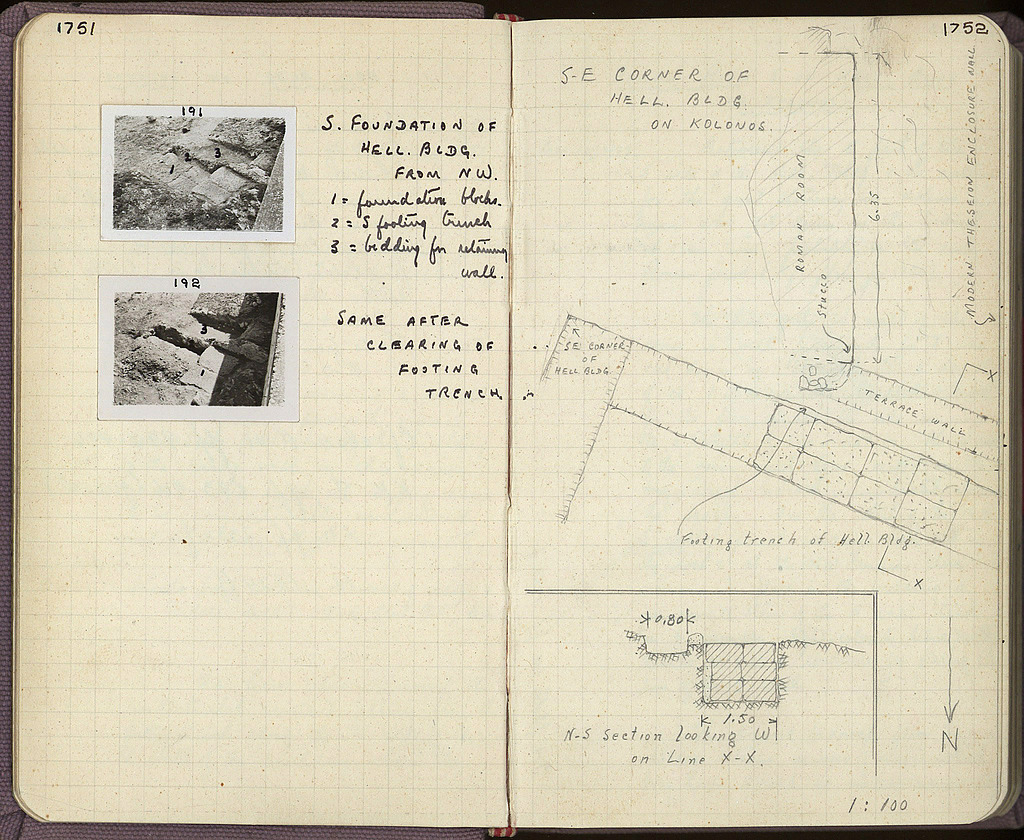 1751
191
S. FOUNDATION OF
HELL. BLDG.
FROM NW.
1 = foundation blocks.
2 = S footing trench
3 = bedding for retaining
wall.
192
SAME AFTER
CLEARING OF
FOOTING
TRENCH
1752
S-E CORNER OF
HELL. BLDG.
ON KOLONOS.
ROMAN ROOM
Stucco
6.35
MODERN THESEION ENCLOSURE WALL
SE CORNER
OF
HELL BLDG.
TERRACE WALL
X
Footing trench of Hell. Bldg.
X
0.80
1.50
N-S Section looking W
on Line X-X.
N
1 : 100